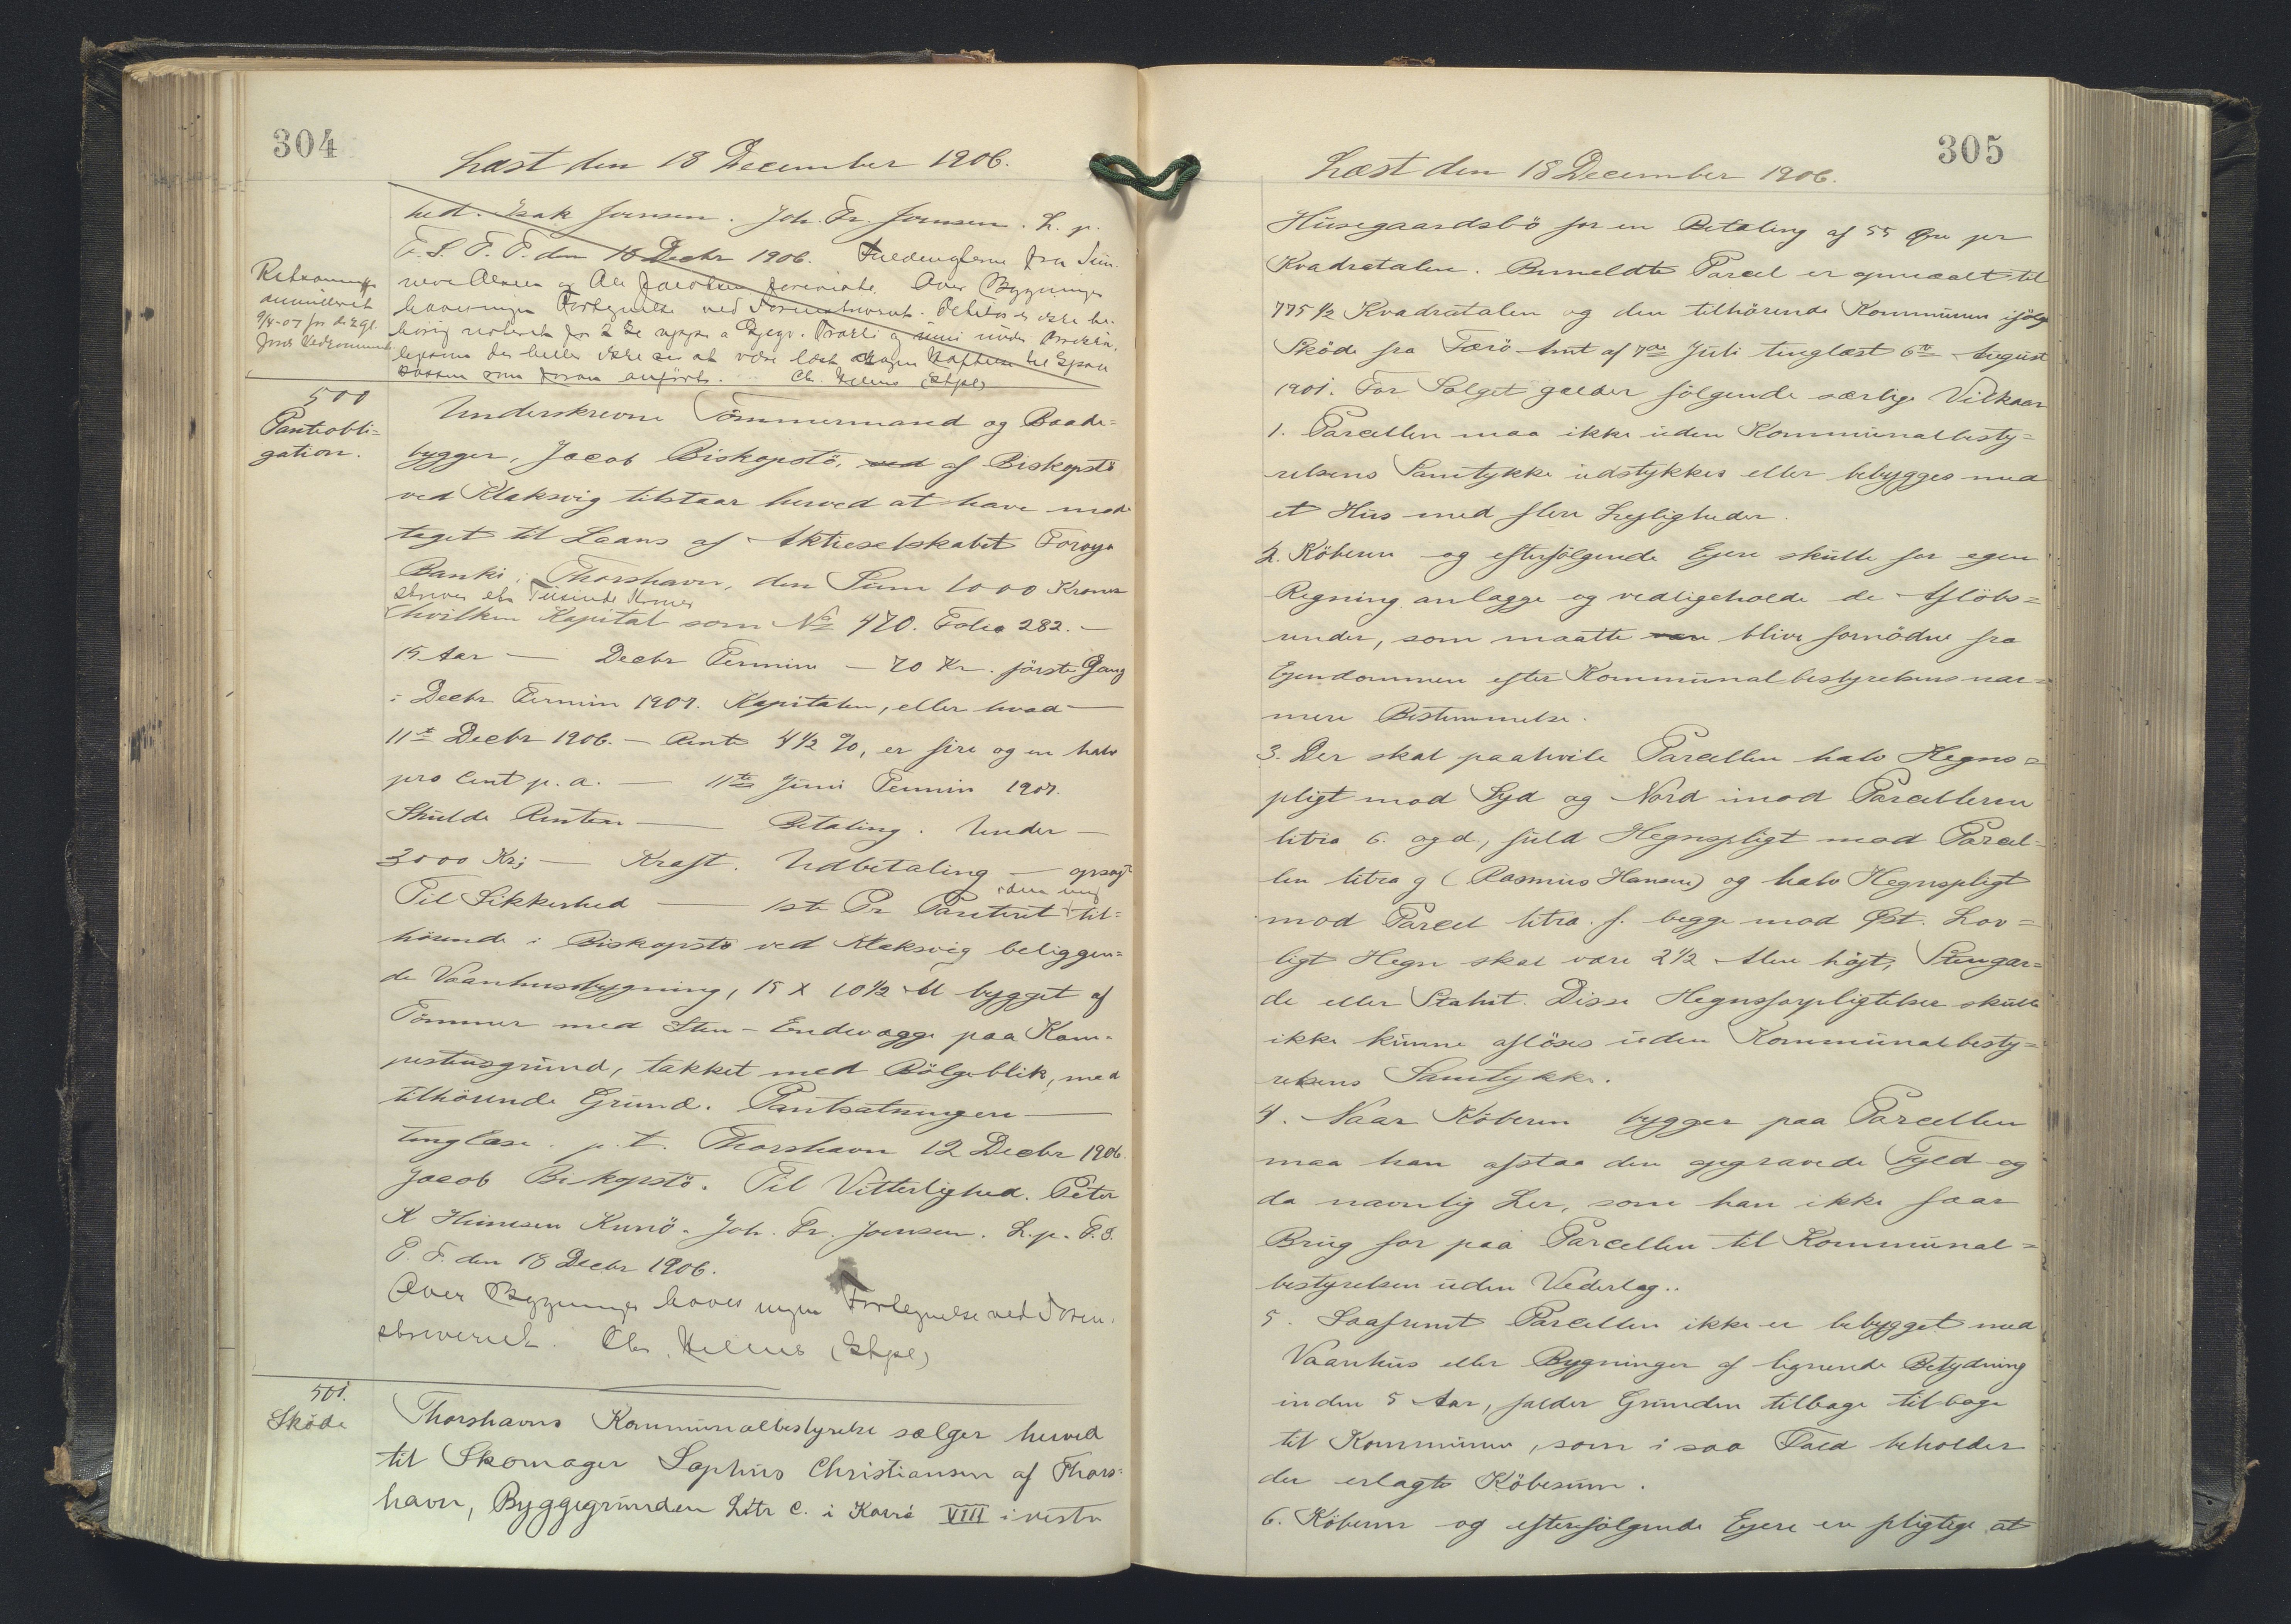 304
Læst den 18 December 1906.
hed. Isak Joensen. Joh. Fr. Joensen. L. p.
F. S. T. P. den 18 Decbr 1906. Fuldmagterne fra Sün-
neve Olsen og Ole Jacobsen foreviste. Over Bygningen
haves ingen Fortegnelse ved Sorenskriveriet. Debitor es ikke be-
som foran anført. Ch. Hellus (Stfpl)
Retsanmærkn
annulleret
9/4-07
500
Panteobli=
gation.
Underskrevne Tömmermand og Baade=
bygger, Jacob Biskopstö, ved af Biskopstö
ved Klaksvig tilstaar herved at have mod
taget til Laans af Aktieselskabet Foroya
Banki, Thorshavn, den Sum 1000 Kroner
skriver et Tusinde Kroner
hvilken Kapital som No 470. Folio 282. —
15 Aar — Decbr Termin — 70 Kr. förste Gang
i Decbr Termin 1907. Kapitalen, eller hvad —
11te Decbr 1906. — Rente 4 1/2 %, er fire og en halv
pro Cent p. a. — 11te Juni Termin 1907.
Skulde Renten — Betaling. Under —
3000 Kr; — Kraft. Udbetaling — opsagt
Til Sikkerhed — 1ste Pr Panteret i den mig til=
hörende i Biskopstö ved Klaksvig beliggen=
de Vaanhusbygning, 15 X 10 1/2 Al bygget af
Tömmer med Sten-Endevægge paa Kam-
pestensgrund, tækket med Bölgeblik, med
tilhörende Grund. Pantsætningen —
tinglæse. p. t. Thorshavn 12 Decbr 1906.
Jacob Biskopstö. Til Vitterlighed. Peter
K Heinesen Kunö. Joh. Fr. Joensen. L. p. F. S.
T. P. den 18 Decbr 1906.
Over Bygningen haves ingen Fortegnelse ved Soren-
skriveriet. Chr. Hellus (Stfpl)
501.
Sköde
Thorshavns Kommunalbestyrelse sælger herved
til Skomager Sophus Christiansen af Thors=
havn, Byggegrunden Litr c. i Karré VIII i vestre
305
Læst den 18 December 1906.
Husegaardsbö for en Betaling af 55 Øre pr
Kvadratalen. Bemeldte Parcel er opmaalt til
775 1/2 Kvadratalen og den tilhörende Kommunen ifölge
Sköde fra Færö Amt af 7de Juli tinglæst 6te August
1901. For Salget gælder fölgende særlige Vilkaar
1. Parcellen maa ikke uden Kommunalbesty=
relsens Samtykke udstykkes eller bebygges med
et Hus med flere Lejligheder.
2. Köberen og efterfölgende Ejere skulle for egen
Regning anlægge og vedligeholde de Aflöbs=
render, som maatte blive fornödne fra
Ejendommen efter Kommunalbestyrelsens nær=
mere Bestemmelse.
3. Der skal paahvile Parcellen halv Hegns=
pligt mod Syd og Nord imod Parcellerne
litra b. og d, fuld Hegnspligt mod Parcel-
len litra g (Rasmus Hansen) og halv Hegnspligt
mod Parcel litra f. begge mod Øst. Lov=
ligt Hegn skal være 2 1/2 Alen höjt, Stengær=
de eller Stakit. Disse Hegnsforpligtelser skulle
ikke kunne aflöses uden Kommunalbesty=
relsens Samtykke.
4. Naar Köberen bygger paa Parcellen
maa han afstaa den opgravede Fyld og
da navnlig Ler, som han ikke faar
Brug for paa Parcellen til Kommunal=
bestyrelsen uden Vederlag..
5. Saafremt Parcellen ikke er bebygget med
Vaanhus eller Bygninger af lignende Betydning
inden 5 Aar, falder Grunden tilbage tilbage
til Kommunen, som i saa Fald beholder
den erlagte Köbesum.
6. Köberen og efterfölgende Ejere er pligtige at